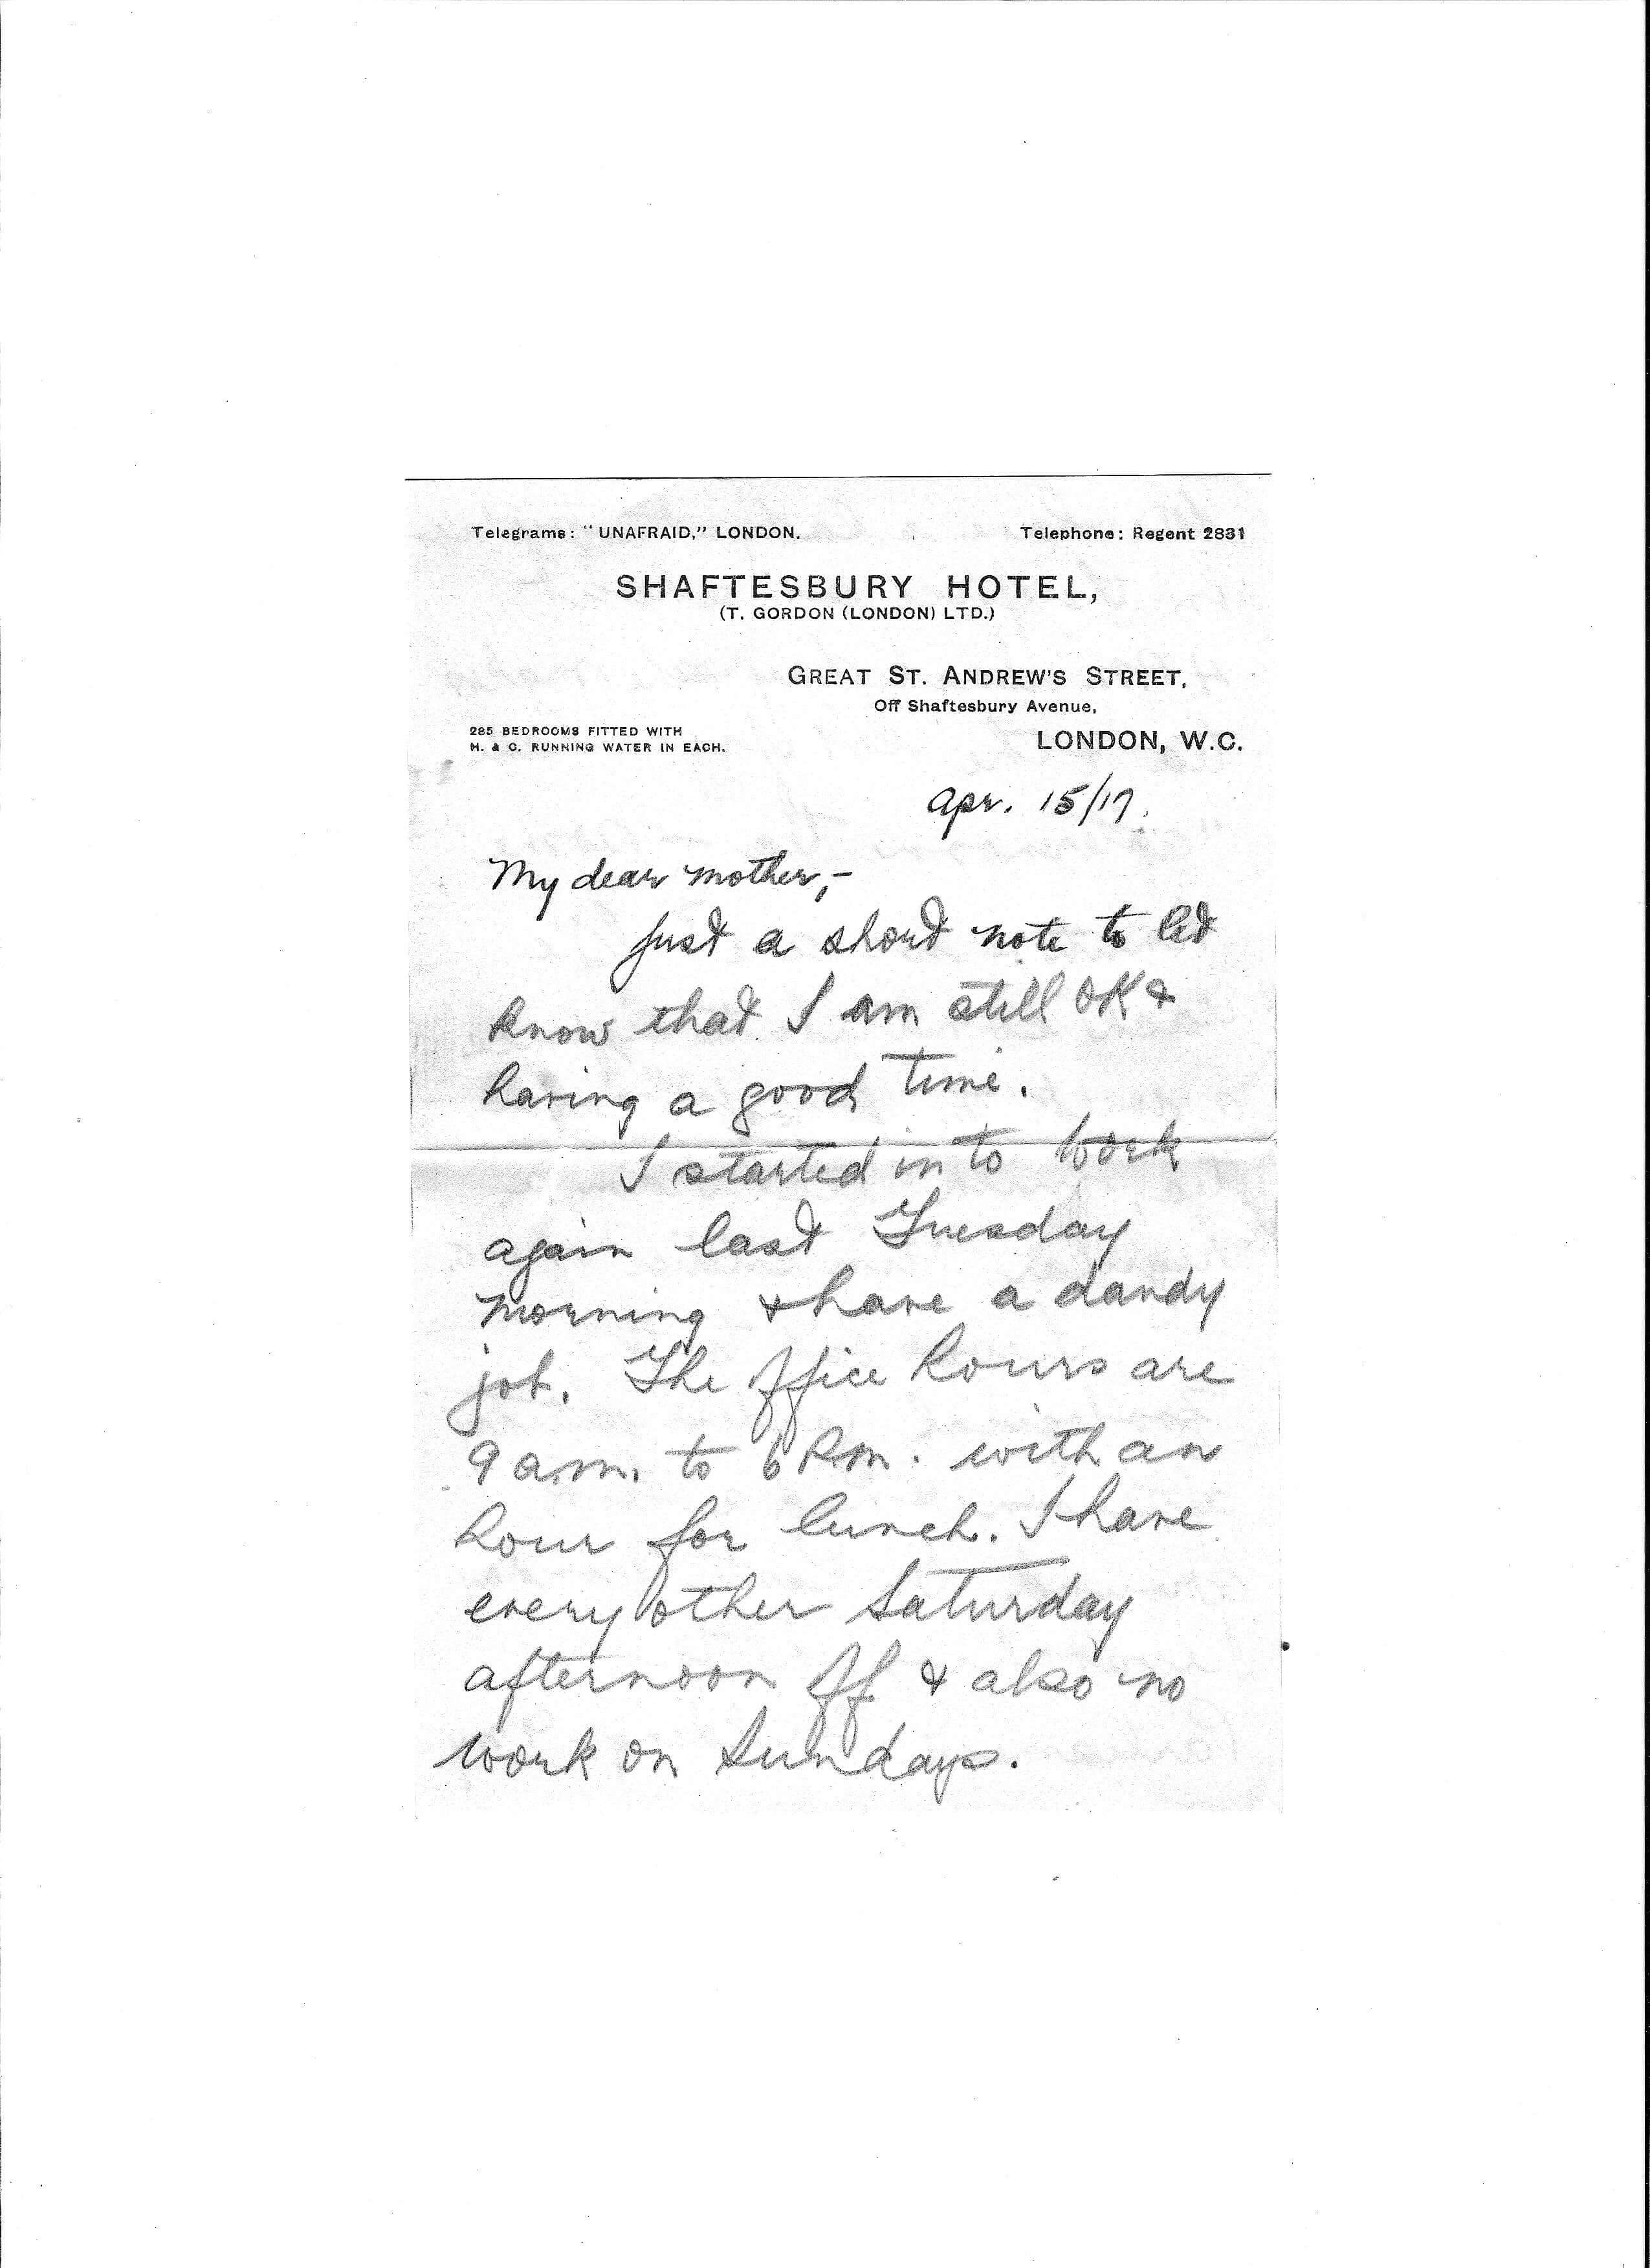 Telegrams: "UNAFRAID," LONDON. Telephone: Regent 2831
SHAFTESBURY HOTEL,
(T. GORDON (LONDON) LTD.)
GREAT ST. ANDREW'S STREET,
Off Shaftesbury Avenue,
285 BEDROOMS FITTED WITH
H. & C. RUNNING WATER IN EACH.
LONDON, W.C.
Apr. 15/17.
My dear mother,-
Just a short note to let
know that I am still OK &
having a good time.
I started in to work
again last Tuesday
morning & have a dandy
job. The office hours are
9 a.m. to 6 P.m. with an
hour for lunch. I have
every other Saturday
afternoon off & also no
work on Sundays.